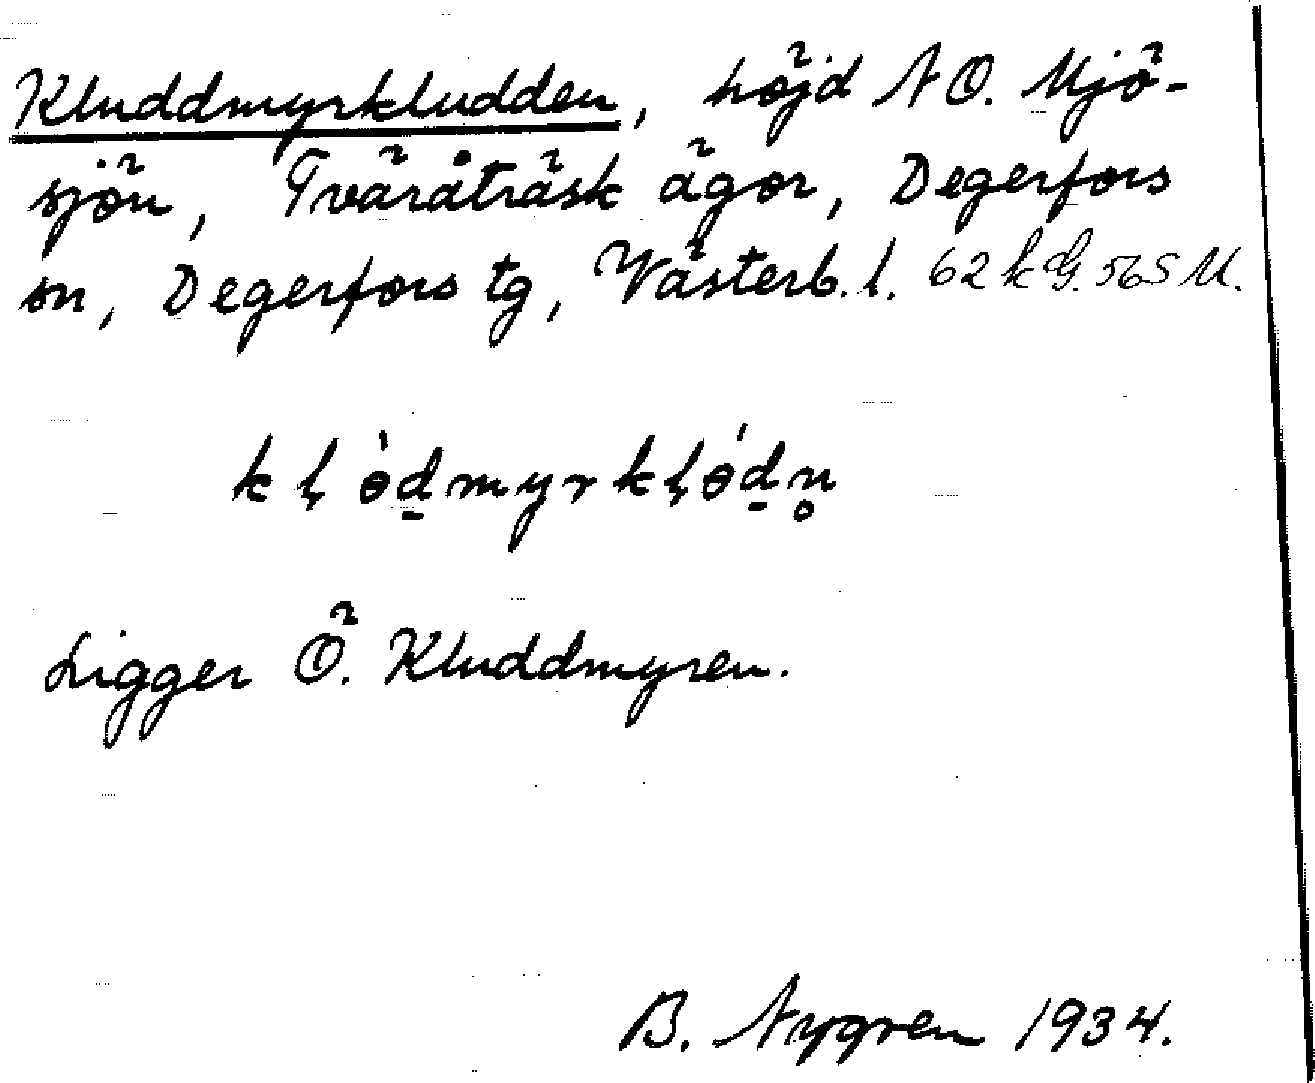 Kluddmyrkludden, höjd NO. Mjö-
sjön, Tväråträsk ägor, Degerfors
sn, Degerfors tg, Västerb. l. 62 k G. 565 M.
kḷɵ̀ḏmyrkḷɵ́ḏn̥
Ligger Ö. Kluddmyren.
B. Nygren 1934.